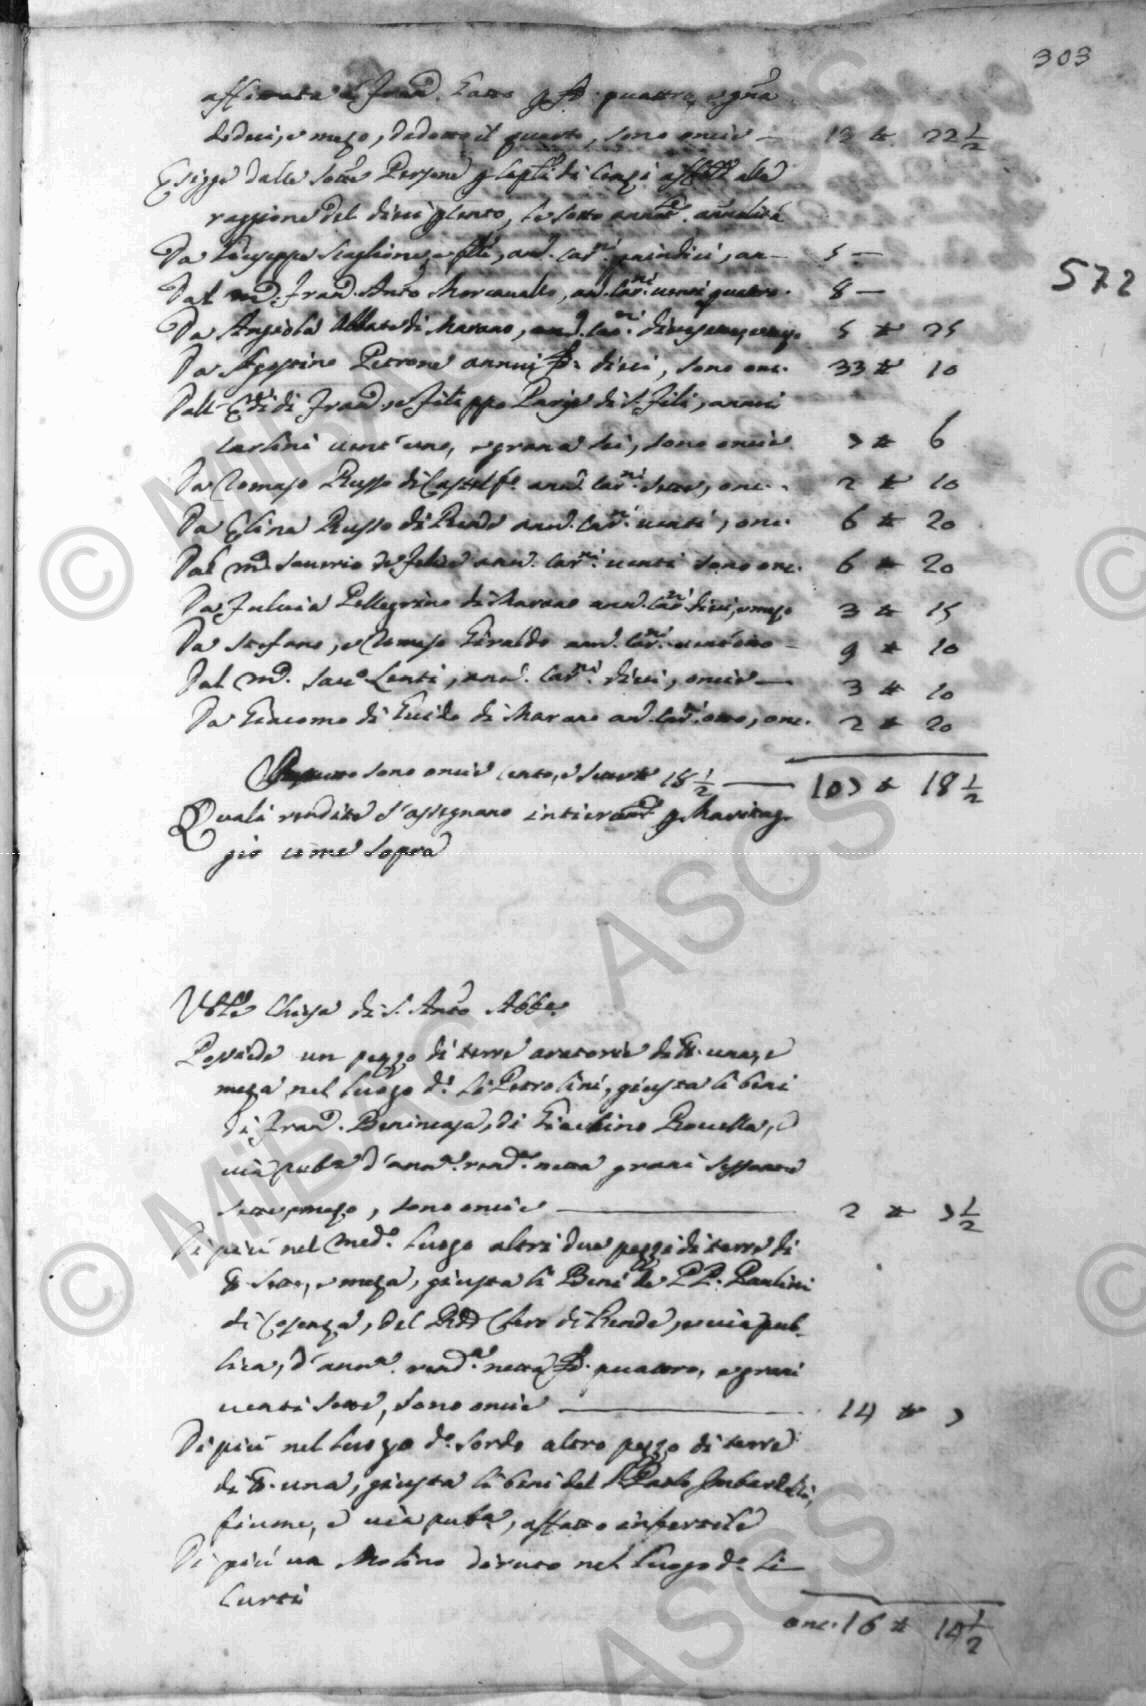 303
affittata à Fran.º Gatto p D. quattro, e grana
dodeci, e mezo, dedotto il quarto, sono oncie — 13 22 1/2
Esigge dalle sotte Persone p Cap.li di Censi aff.ti alla
raggione del dieci p cento, le sotto annot.e annualità
Da Giuseppe Scaglione, e f.lli, an.i car.ni quindici, on — 5 —
572
Dal m.º Fran.º Ant.º Morcavallo, an.i car.ni venti quattro. 8 —
Da Angiola Abbate di Marano, an.i car.ni diecisette, e mezo 5 25
Da Agostino Perrone annui D. dieci, sono onc. 33 10
Dall'Eredi di Fran.º, e Filippo Parise di S. Fili, annui
carlini vent'uno, e grana sei, sono oncie 7 6
Da Tomaso Russo di Castelf.º an.i car.ni sette, onc. 2 10
Da Elina Russo di Rende an.i car.ni venti, onc. 6 20
Dal m.º Saverio de Felice an.i car.ni venti sono onc. 6 20
Da Fulvia Pellegrino di Marano an.i car.ni dieci, e mezo 3 15
Da Stefano, e Tomaso Giraldo an.i car.ni vent'otto 9 10
Dal m.º Sav.º Lenti, an.i car.ni dieci, oncie — 3 10
Da Giacomo di Guido di Marano an.i car.ni otto, onc. 2 20
sono oncie cento, e sette 18 1/2 — 107 18 1/2
Quali rendite s'assegnano intieram.te p Maritag-
gio come sopra
V.ble Chiesa di S. Ant.º Abbe
Possiede un pezzo di terre aratorie di tt. una, e
meza nel luogo d.º li Petrolini, giusta li beni
di Fran.º Benincasa, di Giacbino Rovella, e
via pub.ca d'ann.a rend.a netta grani sessanta
sette e mezo, sono oncie — 2 7 1/2
Di più nel med.º luogo altri due pezzi di terre di
tt. sette, e meza, giusta li Beni de PP. Paulini
di Cosenza, del Rdo Clero di Rende, e via pub-
lica, d'ann.a rend.a netta D. quattro, e grani
venti sette, sono oncie — 14 7
Di più nel luogo d.º Sordo altro pezzo di terre
di tt. una, giusta li beni del S. Paolo Gubardelli,
fiume, e via pub.a, affatto infertile
Di più un Molino diruto nel luogo d.º li
Curti
onc. 16 14 1/2
© MiBAC - ASCS